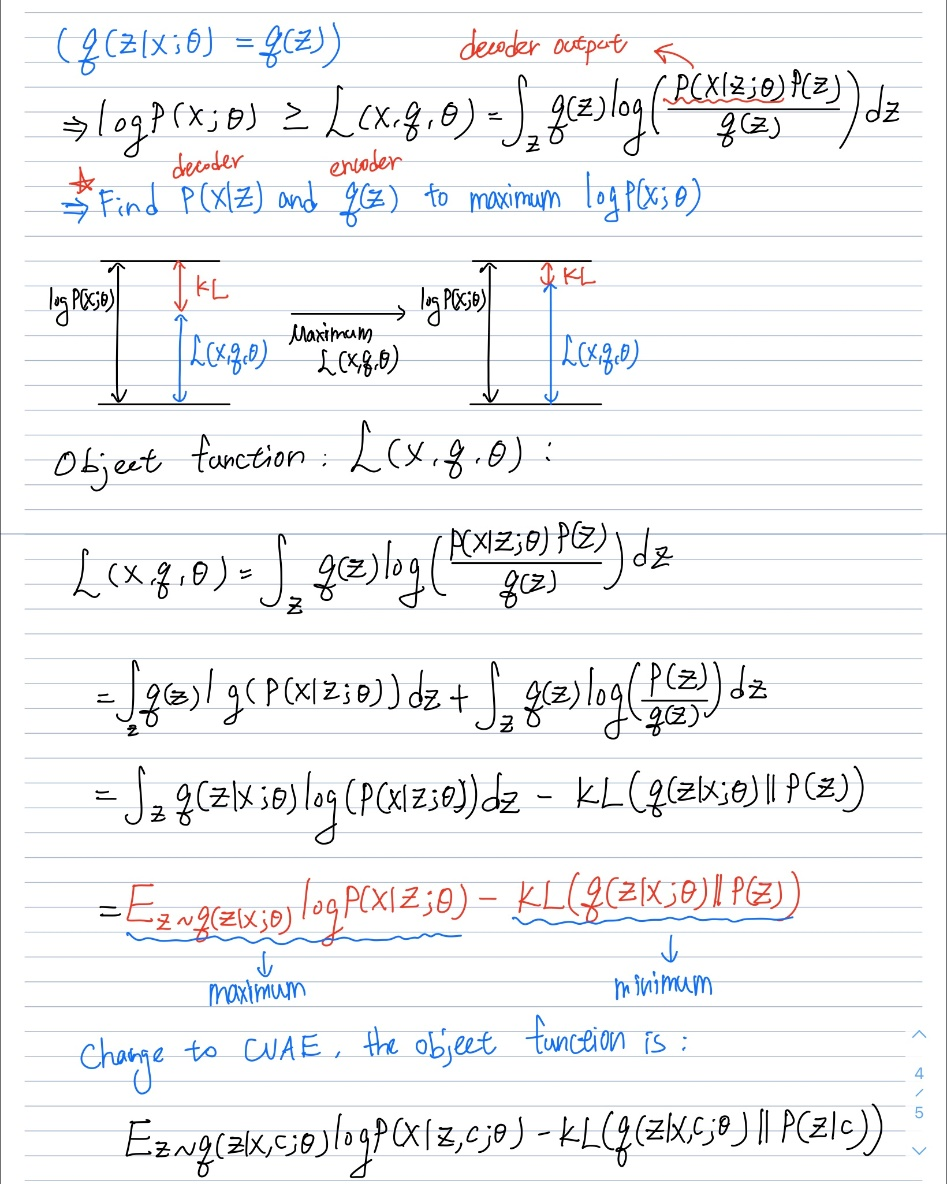 (q(z|x;θ) = q(z))
decoder output
⇒ log P(x;θ) ≥ L(x,q,θ) = ∫_z q(z) log(P(x|z;θ)P(z)/q(z)) dz
decoder encoder
☆ ⇒ Find P(x|z) and q(z) to maximum log P(x;θ)
log P(x;θ) KL L(x,q,θ)
Maximum
L(x,q,θ)
log P(x;θ) KL L(x,q,θ)
Object function : L(x,q,θ) :
L(x,q,θ) = ∫_z q(z) log(P(x|z;θ)P(z)/q(z)) dz
= ∫_z q(z) l g(P(x|z;θ)) dz + ∫_z q(z) log(P(z)/q(z)) dz
= ∫_z q(z|x;θ) log(P(x|z;θ)) dz - KL(q(z|x;θ) || P(z))
= E_{z~q(z|x;θ)} log P(x|z;θ) - KL(q(z|x;θ) || P(z))
↓ ↓
maximum minimum
Change to CVAE, the object function is :
E_{z~q(z|x,c;θ)} log P(x|z,c;θ) - KL(q(z|x,c;θ) || P(z|c))
4
/
5